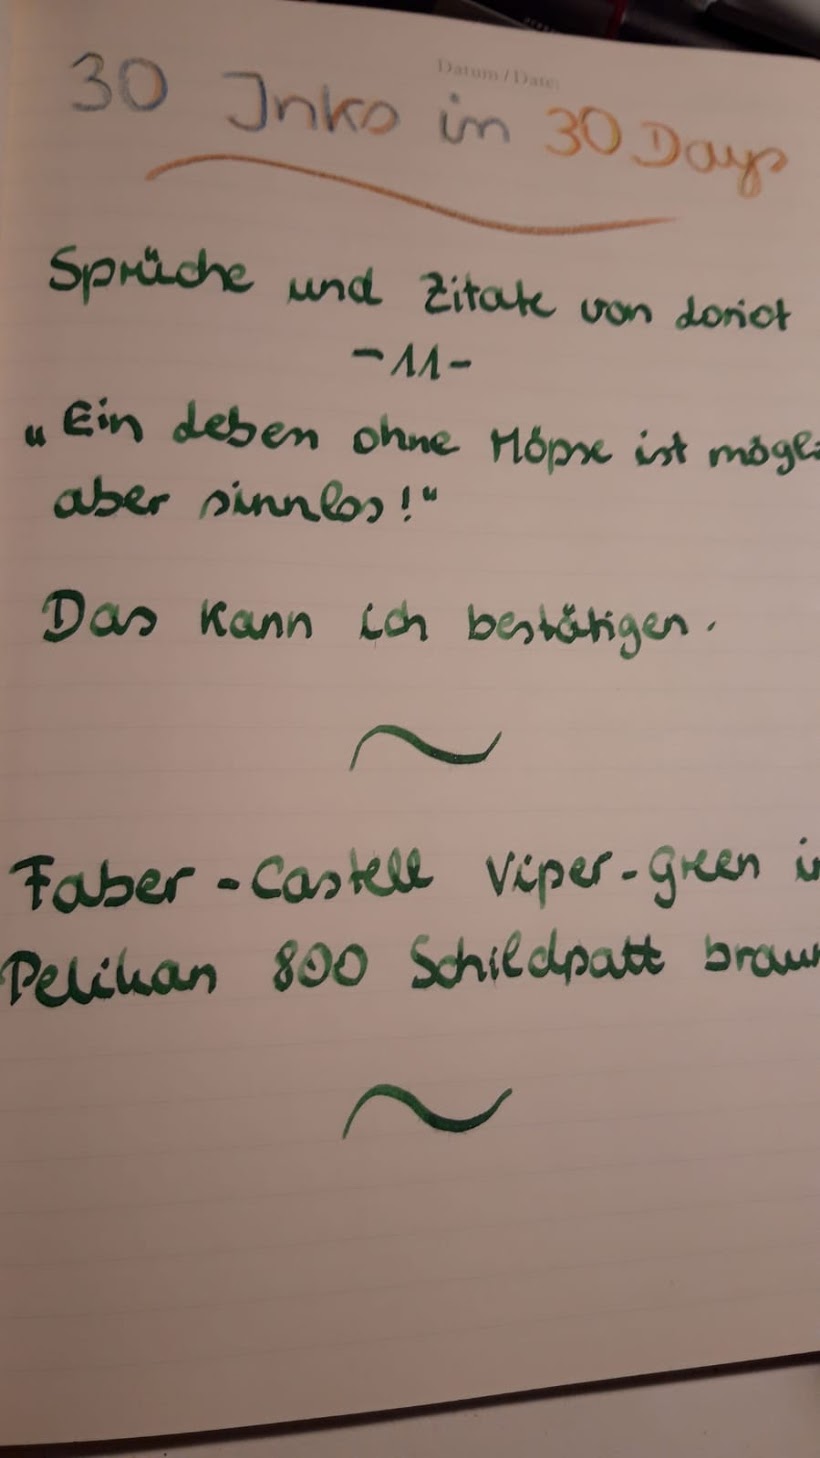 Datum / Date:
30 Inks in 30 Days
Sprüche und Zitate von Loriot
-11-
„Ein Leben ohne Möpse ist mögli
aber sinnlos!“
Das kann ich bestätigen.
~
Faber-Castell Viper-green in
Pelikan 800 Schildpatt braun
~